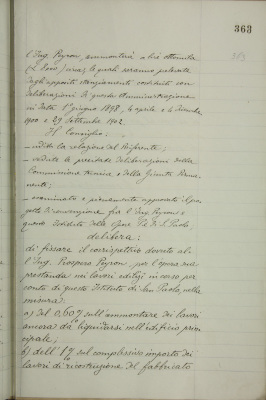 363
l'Ing. Peyron, ammonterà a lire ottomila
(L. 8000) circa, le quali saranno prelevate
dagli appositi stanziamenti costituiti con
deliberazioni di questa Amministrazione
in data 1º giugno 1898, 4 aprile e 4 dicembre
1900 e 29 settembre 1902.
Il Consiglio:
- udita la relazione del Riferente;
- vedute le precitate deliberazioni della
Commissione tecnica e della Giunta Perma-
nente;
- esaminato e pienamente approvato il pro-
getto di convenzione fra l'Ing. Peyron e
questo Istituto delle Opere Pie di S. Paolo
delibera:
di fissare il corrispettivo dovuto al-
l'Ing. Prospero Peyron, per l'opera sua
prestanda nei lavori edilizi in corso per
conto di questo Istituto di San Paolo, nella
misura:
a) del 0,60% sull'ammontare dei lavori
ancora da liquidarsi nell'edificio prin-
cipale;
b) dell' 1% sul complessivo importo dei
lavori di ricostruzione del fabbricato